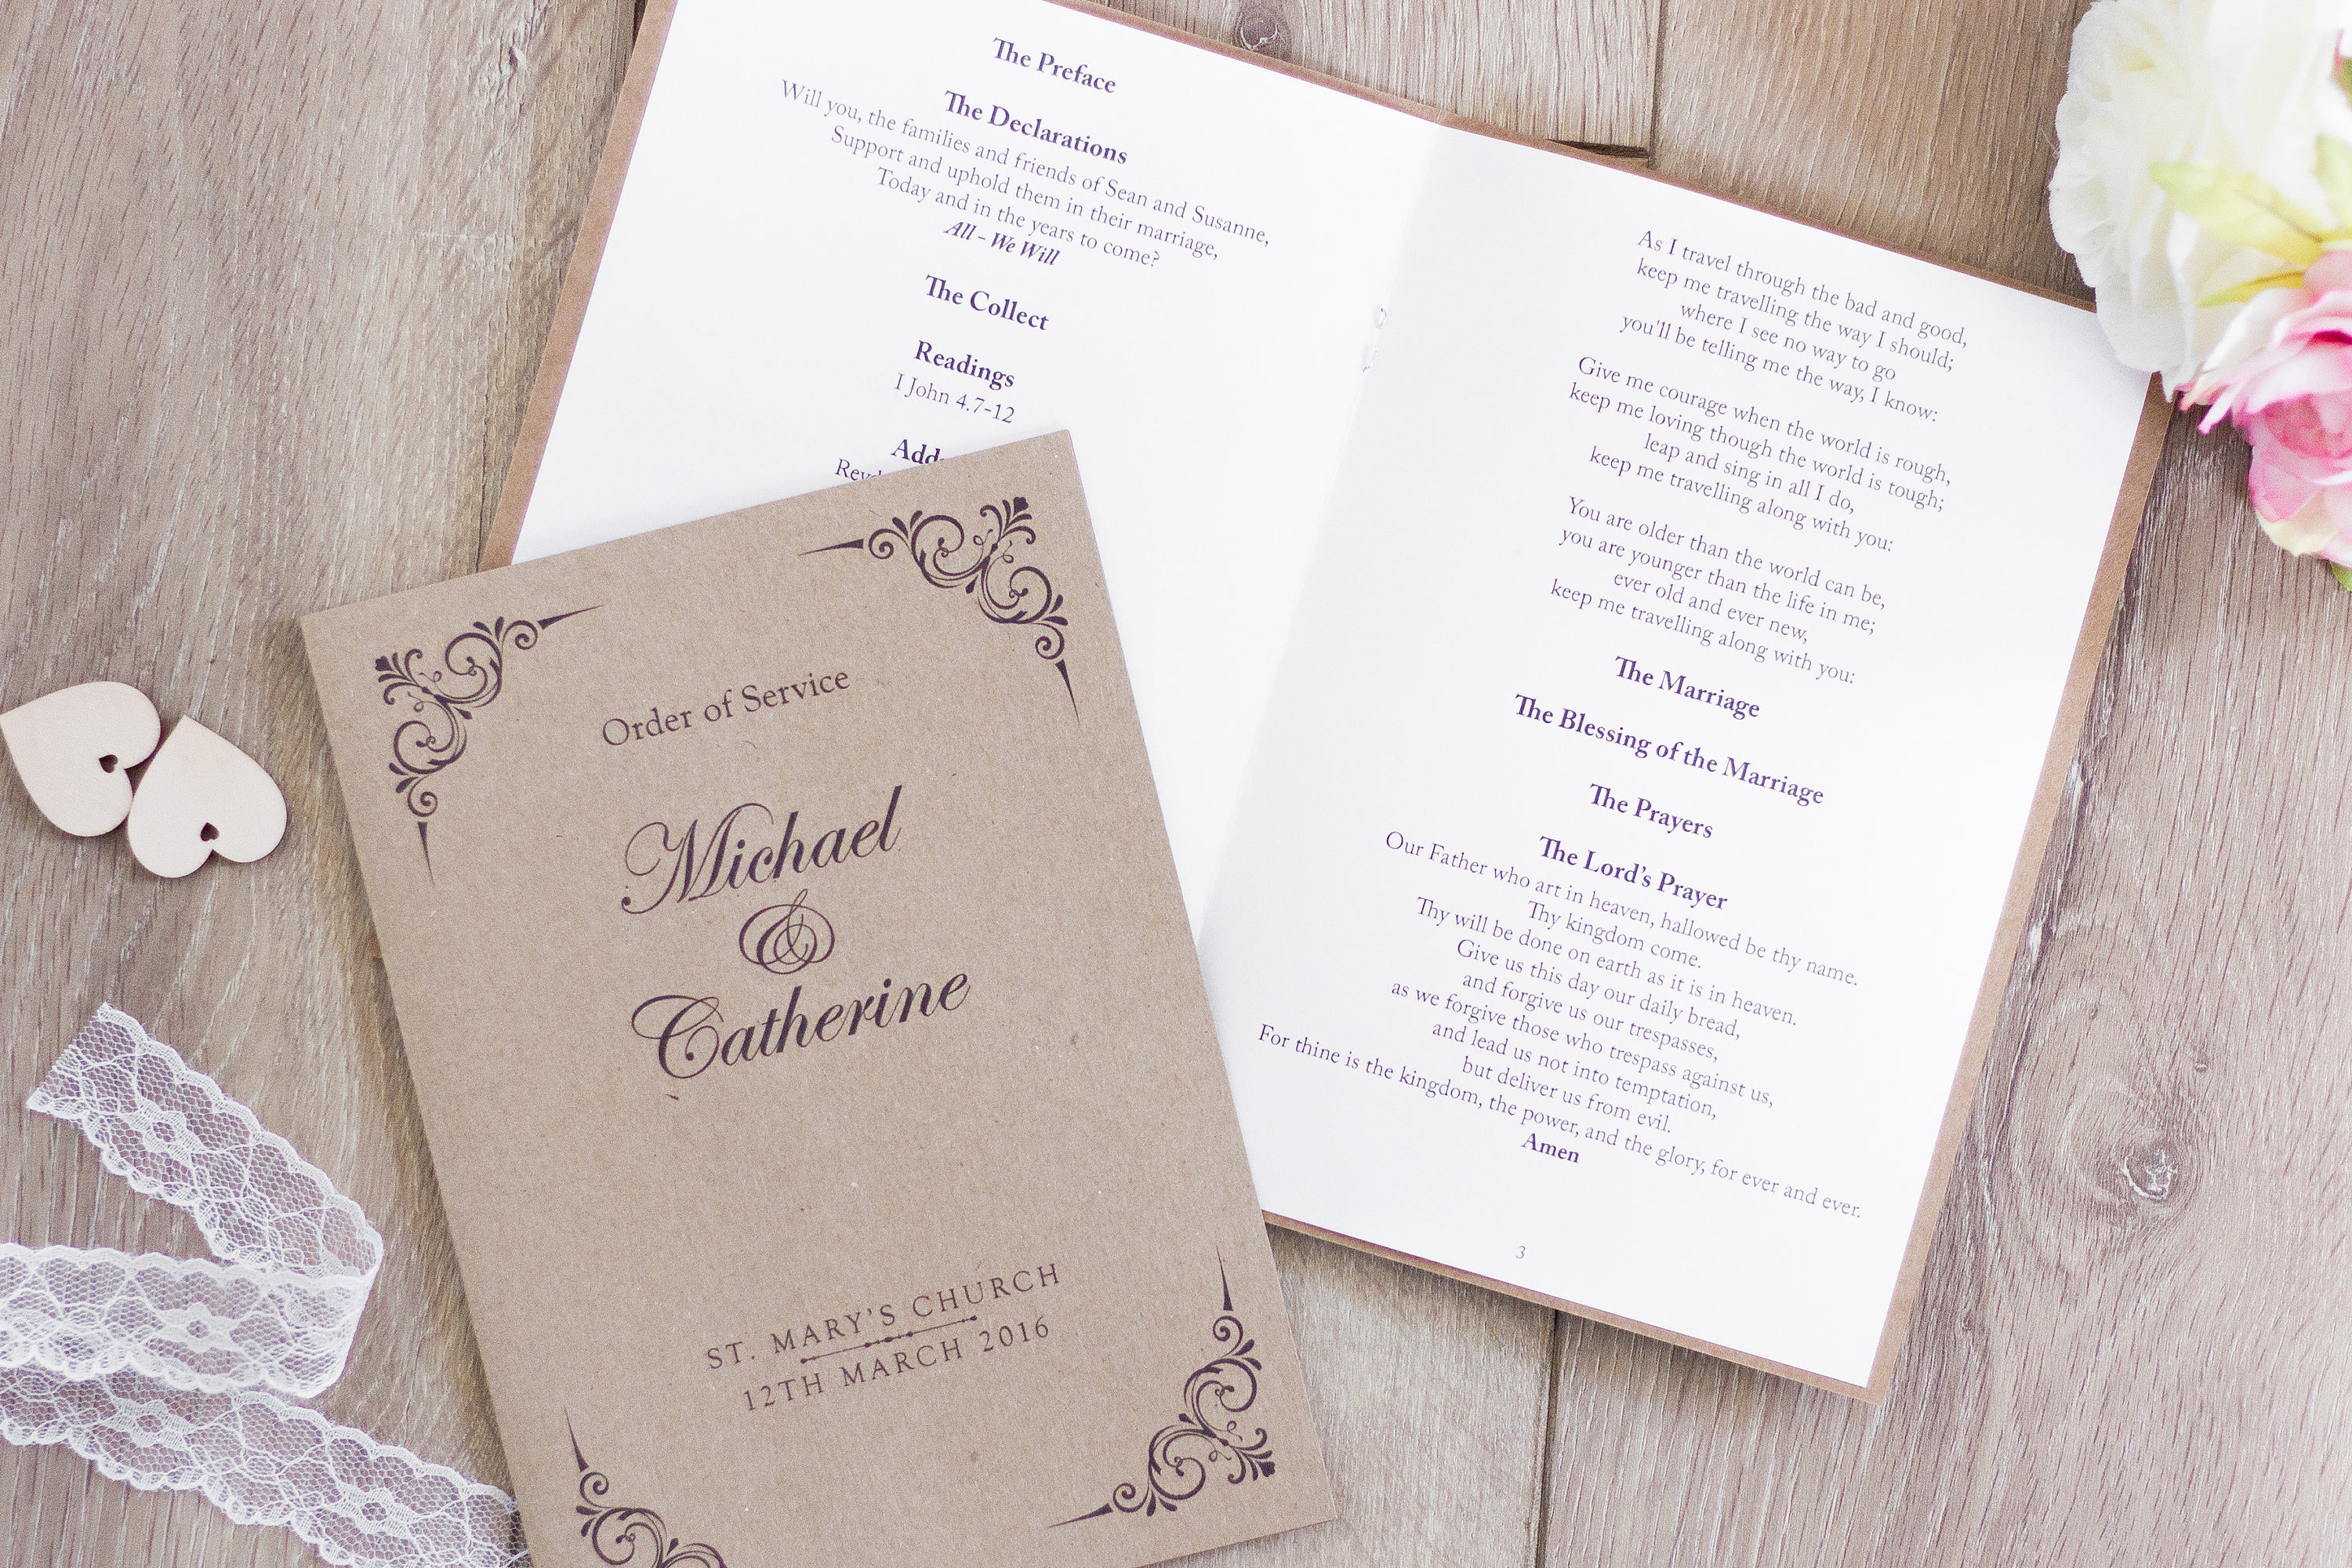 The Preface
The Declarations
Will you, the families and friends of Sean and Susanne,
Support and uphold them in their marriage,
Today and in the years to come?
All - We Will
The Collect
Readings
I John 4.7-12
As I travel through the bad and good,
keep me travelling the way I should;
where I see no way to go
you'll be telling me the way, I know:
Give me courage when the world is rough,
keep me loving though the world is tough;
leap and sing in all I do,
keep me travelling along with you:
You are older than the world can be,
you are younger than the life in me;
ever old and ever new,
keep me travelling along with you:
The Marriage
The Blessing of the Marriage
The Prayers
The Lord's Prayer
Our Father who art in heaven, hallowed be thy name.
Thy kingdom come.
Thy will be done on earth as it is in heaven.
Give us this day our daily bread,
and forgive us our trespasses,
as we forgive those who trespass against us,
and lead us not into temptation,
but deliver us from evil.
For thine is the kingdom, the power, and the glory, for ever and ever.
Amen
3
Order of Service
Michael
&
Catherine
ST. MARY'S CHURCH
12TH MARCH 2016